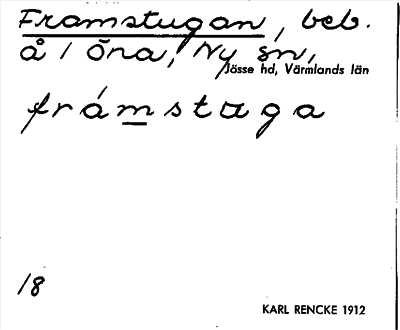 Framstugan, beb.
å 1 Öna, Ny sn,
Jösse hd, Värmlands län
frámstuga
18
KARL RENCKE 1912